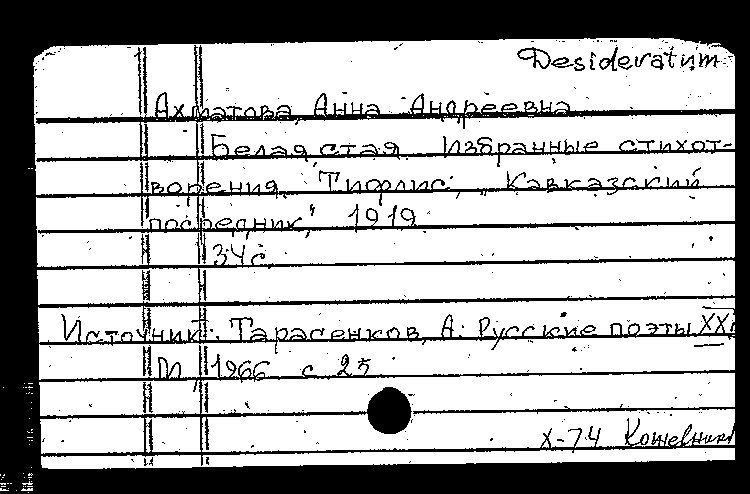 Desideratum
Ахматова, Анна Андреевна
Белая стая. Избранные стихот-
ворения. Тифлис, „Кавказский
посредник", 1919.
34 с.
Источник: Тарасенков, А. Русские поэты XX
М, 1966 с 25
X-74 Кошевник